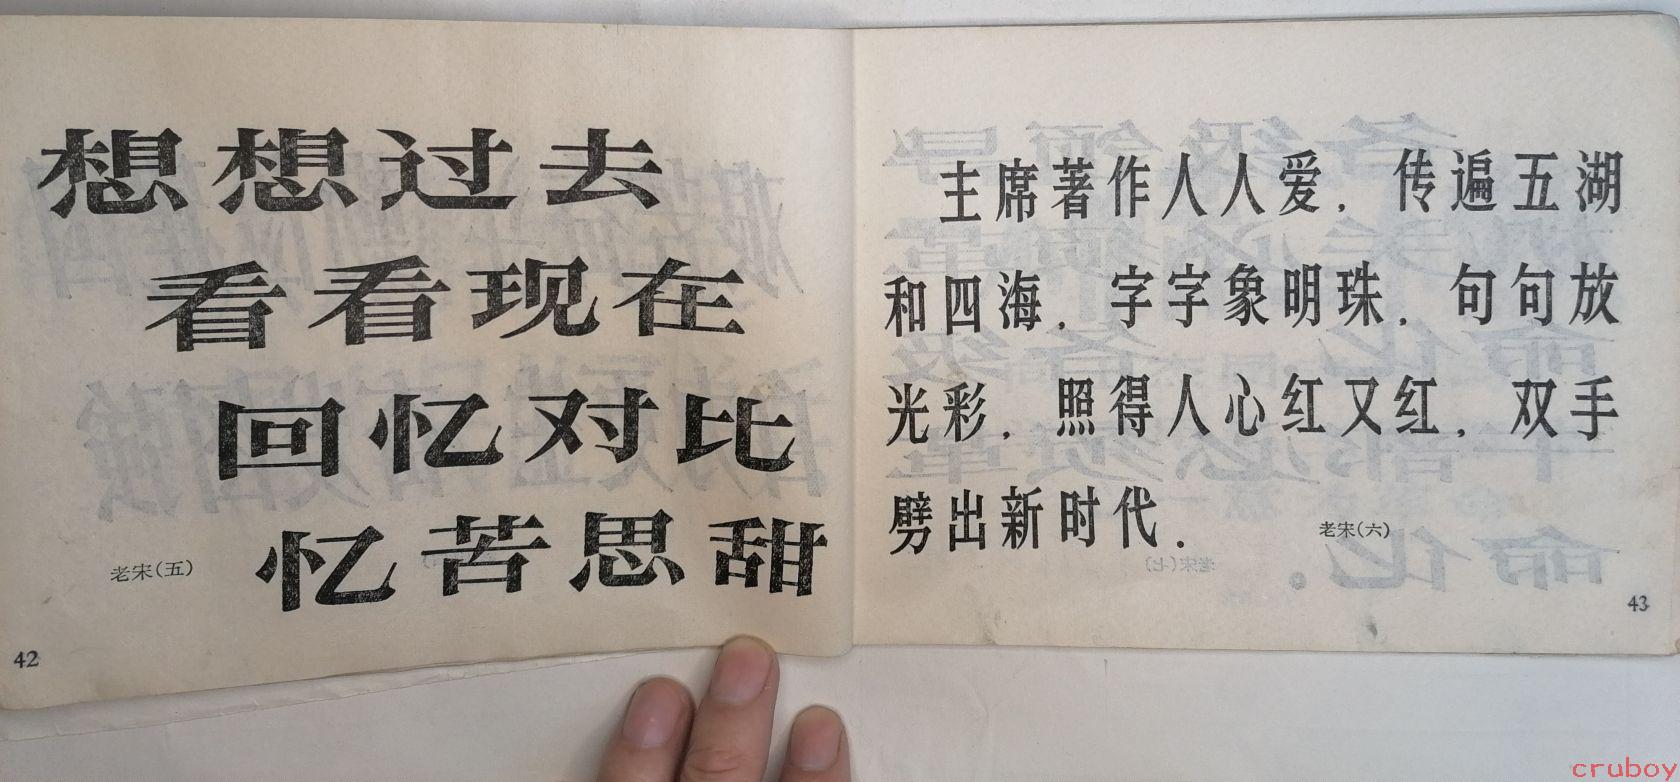 想想过去
看看现在
回忆对比
忆苦思甜
老宋(五)
42
主席著作人人爱．传遍五湖
和四海．字字象明珠．句句放
光彩．照得人心红又红．双手
劈出新时代．
老宋(六)
老宋(七)
43
cruboy